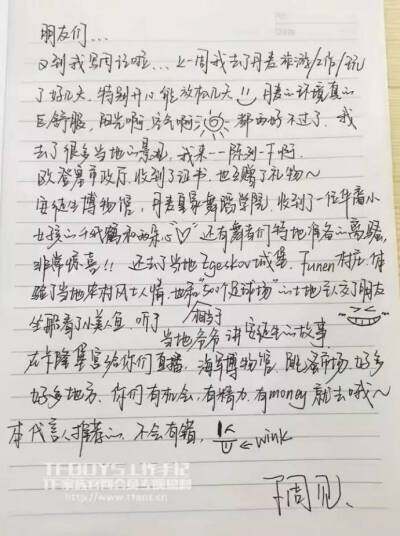 朋友们...
又到我写周记啦... 上一周我去了丹麦旅游/工作/玩
了好几天. 特别开心能放松几天!! 丹麦的环境真的
巨舒服, 阳光啊 空气啊 都再好不过了. 我
去了很多当地的景观, 我来一一陈列一下啊.
欧登塞市政厅, 收到了证书, 也互赠了礼物~
安徒生博物馆, 丹麦皇家舞蹈学院. 收到了一位华裔小
女孩的千纸鹤和的心♡ 还有舞者们特地准备的
非常惊喜!! 还去了当地Egeskov城堡. Funen村庄. 体
验了当地农村风土人情. 也和"50个足球场"的土地主人交了朋友
相当于
坐船看了小美人鱼, 听了
当地爷爷讲安徒生的故事
在卡隆堡宫给你们直播, 海军博物馆, 跳蚤市场. 好多
好多地方. 你们有机会, 有精力. 有money 就去哦~
本代言人推荐的, 不会有错, ← wink
下周见.
TFBOYS工作手记
http://www.tfent.cn